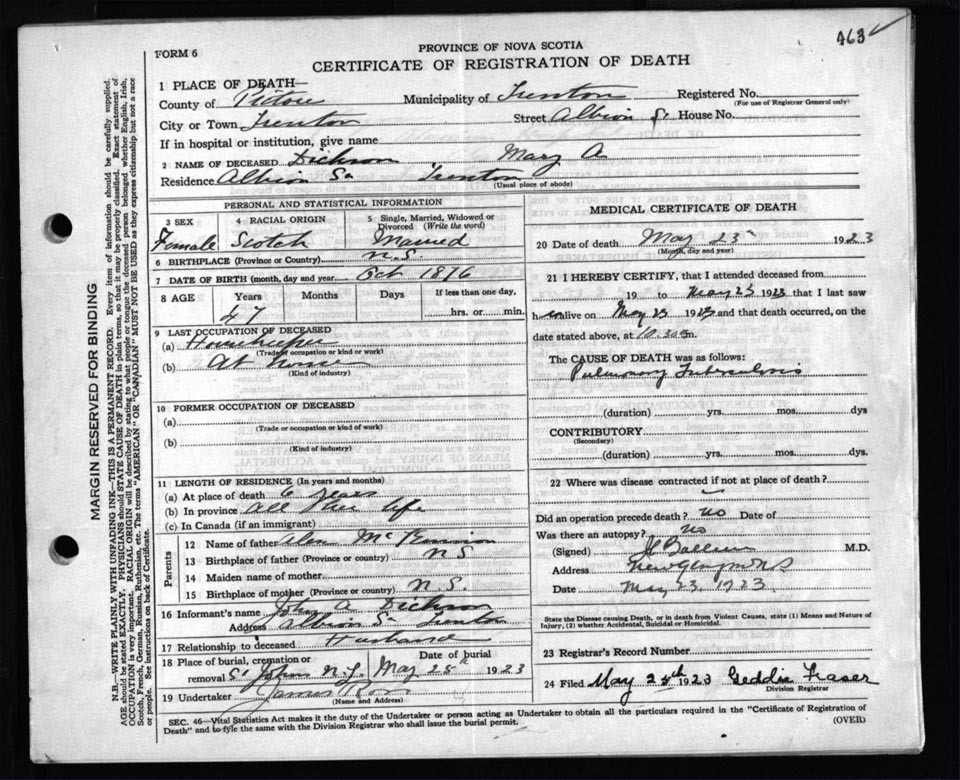 463 ✓
FORM 6
PROVINCE OF NOVA SCOTIA
CERTIFICATE OF REGISTRATION OF DEATH
1 PLACE OF DEATH—
County of Pictou Municipality of Trenton Registered No.
(For use of Registrar General only)
City or Town Trenton Street Albion St House No.
If in hospital or institution, give name
2 NAME OF DECEASED Dickson Mary A
Residence Albion St Trenton
(Usual place of abode)
PERSONAL AND STATISTICAL INFORMATION
3 SEX 4 RACIAL ORIGIN 5 Single, Married, Widowed or Divorced (Write the word)
Female Scotch Married
6 BIRTHPLACE (Province or Country) N.S.
7 DATE OF BIRTH (month, day and year) Oct 1876
8 AGE Years Months Days If less than one day,
47 hrs. or min.
9 LAST OCCUPATION OF DECEASED
(a) Housekeeper
(Trade or occupation or kind or work)
(b) At home
(Kind of industry)
10 FORMER OCCUPATION OF DECEASED
(a)
(Trade or occupation or kind of work)
(b)
(Kind of industry)
11 LENGTH OF RESIDENCE (In years and months)
(a) At place of death 6 years
(b) In province All her life
(c) In Canada (if an immigrant)
Parents
12 Name of father Alex McKinnon
13 Birthplace of father (Province or country) N S
14 Maiden name of mother
15 Birthplace of mother (Province or country) N.S.
16 Informant's name John A Dickson
Address Albion St Trenton
17 Relationship to deceased Husband
18 Place of burial, cremation or removal Date of burial
St Johns N.G. May 25th 1923
19 Undertaker James
(Name and Address)
MEDICAL CERTIFICATE OF DEATH
20 Date of death May 23 1923
(Month, day and year)
21 I HEREBY CERTIFY, that I attended deceased from
19 to May 23 1923 that I last saw
her alive on May 23 1923 and that death occurred, on the
date stated above, at 10.30 m.
The CAUSE OF DEATH was as follows:
Pulmonary Tuberculosis
(duration) yrs. mos. dys
CONTRIBUTORY
(Secondary)
(duration) yrs. mos. dys.
22 Where was disease contracted if not at place of death?
Did an operation precede death? no Date of
Was there an autopsy? no
(Signed) M.D.
Address New Glasgow NS
Date May 23, 1923
State the Disease causing Death, or in death from Violent Causes, state (1) Means and Nature of
Injury, (2) whether Accidental, Suicidal or Homicidal.
23 Registrar's Record Number
24 Filed May 1923 Geddie Fraser
Division Registrar
SEC. 46—Vital Statistics Act makes it the duty of the Undertaker or person acting as Undertaker to obtain all the particulars required in the "Certificate of Registration of
Death" and to fyle the same with the Division Registrar who shall issue the burial permit. (OVER)
MARGIN RESERVED FOR BINDING
N.B.—WRITE PLAINLY WITH UNFADING INK—THIS IS A PERMANENT RECORD. Every item of information should be carefully supplied.
AGE should be stated EXACTLY. PHYSICIANS should STATE CAUSE OF DEATH in plain terms, so that it may be properly classified. Exact statement of
OCCUPATION is very important. RACIAL ORIGIN will be described by stating to what people or tongue the deceased person belonged whether English, Irish,
Scotch, French, German, Russian, Ruthenian, etc. The terms "AMERICAN" OR "CANADIAN" MUST NOT BE USED as they express citizenship but not a race
or people. See instructions on back of Certificate.